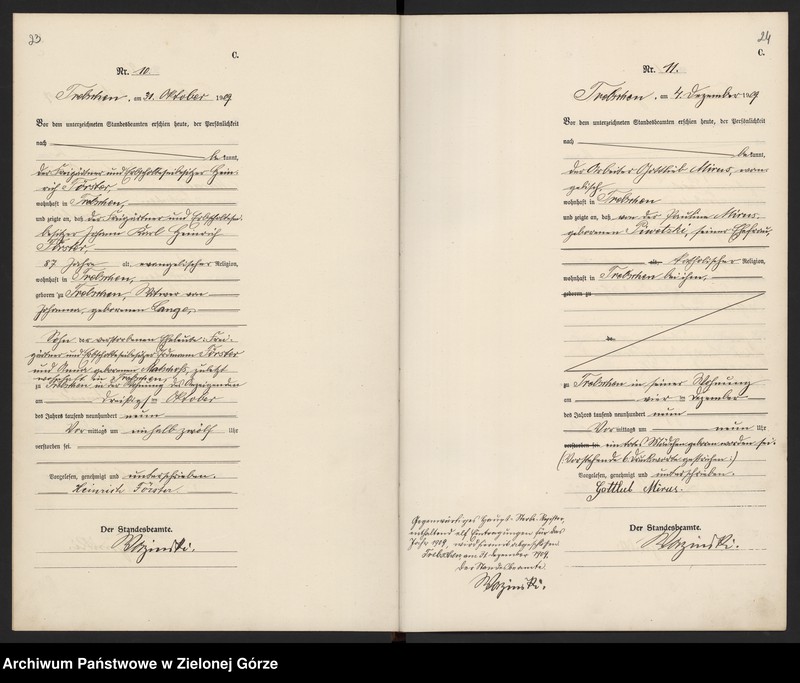 23
C.
Nr. 10.
Trebschen, am 31. Oktober 1909
Vor dem unterzeichneten Standesbeamten erschien heute, der Persönlichkeit
nach
be kannt,
der Freigärtner und Hein-
rich Förster,
wohnhaft in Trebschen,
und zeigte an, daß der Freigärtner und
besitzer Johann Karl Heinrich
Förster,
87 Jahre alt, evangelischer Religion,
wohnhaft in Trebschen,
geboren zu Trebschen, Witwer von
Johanna, geborenen Lange,
Sohn der verstorbenen Eheleute Frei-
gärtner und Förster
und Anna geborenen zuletzt
wohnhaft in Trebschen,
zu Trebschen in der Wohnung des Anzeigenden
am dreißigsten Oktober
des Jahres tausend neunhundert neun
Vormittags um einhalb zwölf Uhr
verstorben sei.
Vorgelesen, genehmigt und unterschrieben.
Heinrich Förster
Der Standesbeamte.
Wozinski.
24
C.
Nr. 11.
Trebschen, am 4. Dezember 1909
Vor dem unterzeichneten Standesbeamten erschien heute, der Persönlichkeit
nach
be kannt,
der Arbeiter Gottlieb Mirus, evan-
gelisch,
wohnhaft in Trebschen
und zeigte an, daß von der Pauline Mirus,
geborenen seiner Ehefrau,
alt, katholischer Religion,
wohnhaft in Trebschen bei ihm,
geboren zu
zu Trebschen in seiner Wohnung
am vier ten Dezember
des Jahres tausend neunhundert neun
Vormittags um neun Uhr
verstorben sei. ein totes Mädchen geboren worden sei.
(Vorstehende 6 Druckworte gestrichen.)
Vorgelesen, genehmigt und unterschrieben.
Gottlieb Mirus.
Der Standesbeamte.
Wozinski.
Gegenwärtiges Haupt-Sterbe-Register,
enthaltend elf Eintragungen für das
Jahr 1909, wird hiermit abgeschlossen.
Trebschen am 31. Dezember 1909.
Der Standesbeamte.
Wozinski.
Archiwum Państwowe w Zielonej Górze